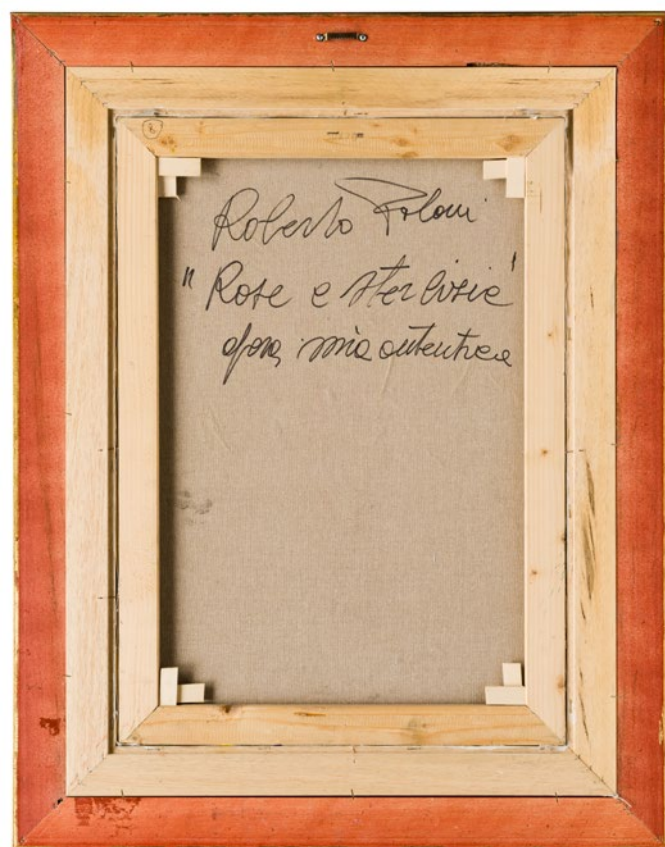 Roberto Poloni
"Rose e sterlizie"
opera mia autentica